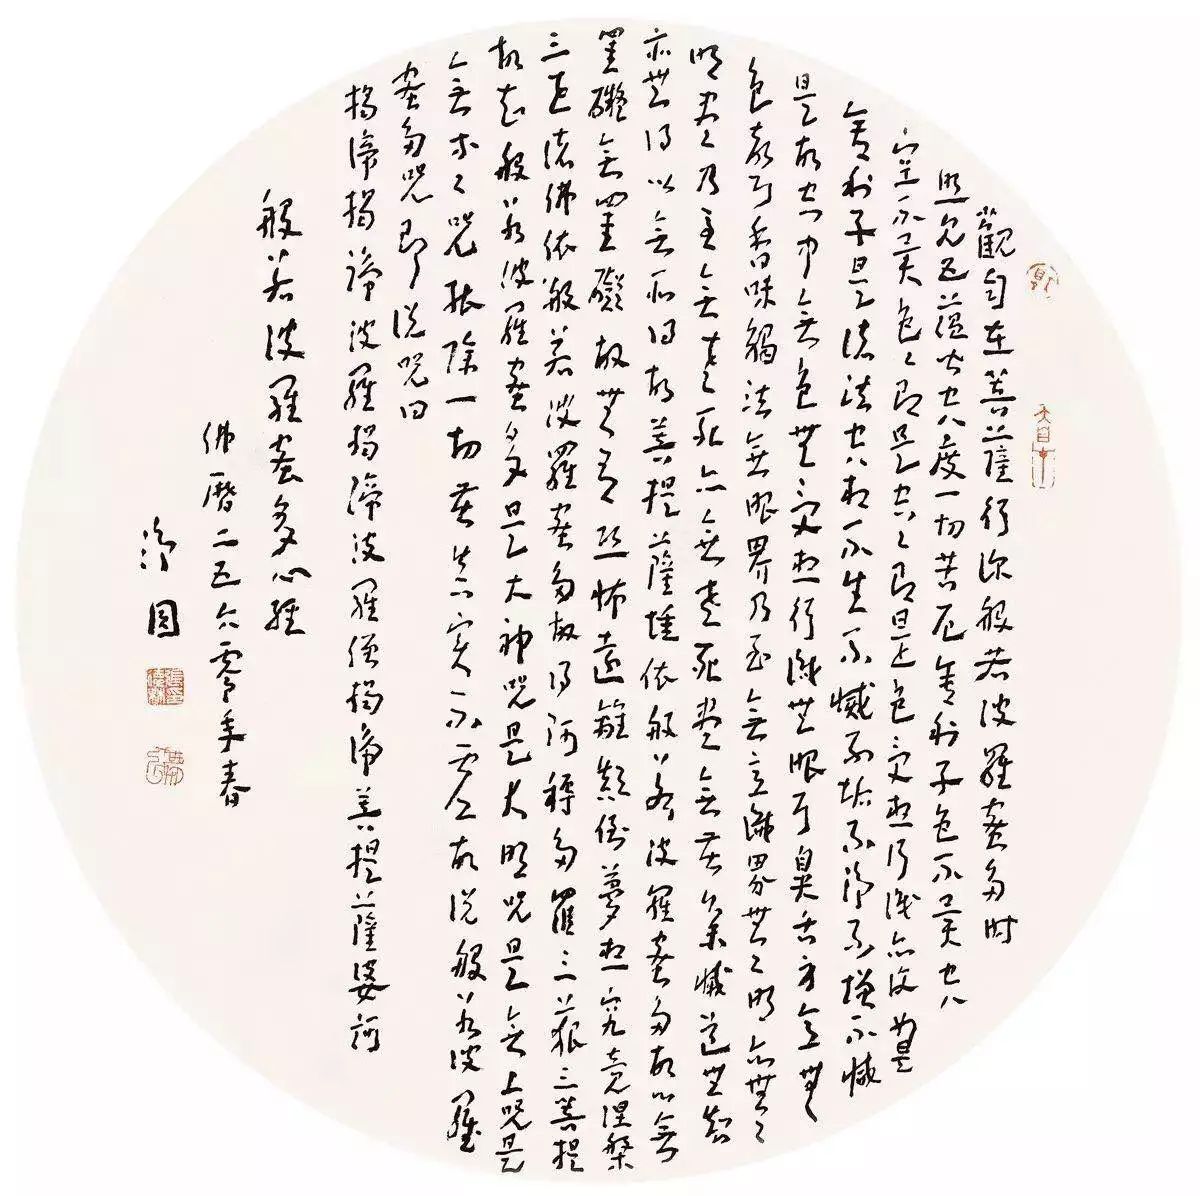 觀自在菩薩行深般若波羅蜜多時
照見五蘊皆空度一切苦厄舍利子色不異空
空不異色〻即是空〻即是色受想行識亦復如是
舍利子是諸法空相不生不滅不垢不淨不增不減
是故空中無色無受想行識無眼耳鼻舌身意無
色聲香味觸法無眼界乃至無意識界無〻明亦無〻
明盡乃至無老死亦無老死盡無苦集滅道無智
亦無得以無所得故菩提薩埵依般若波羅蜜多故心無
罣礙無罣礙故無有恐怖遠離顛倒夢想究竟涅槃
三世諸佛依般若波羅蜜多故得阿耨多羅三藐三菩提
故知般若波羅蜜多是大神咒是大明咒是無上咒是
無等〻咒能除一切苦真實不虛故說般若波羅
蜜多咒即說咒曰
揭諦揭諦波羅揭諦波羅僧揭諦菩提薩婆訶
般若波羅蜜多心經
佛曆二五六零年春